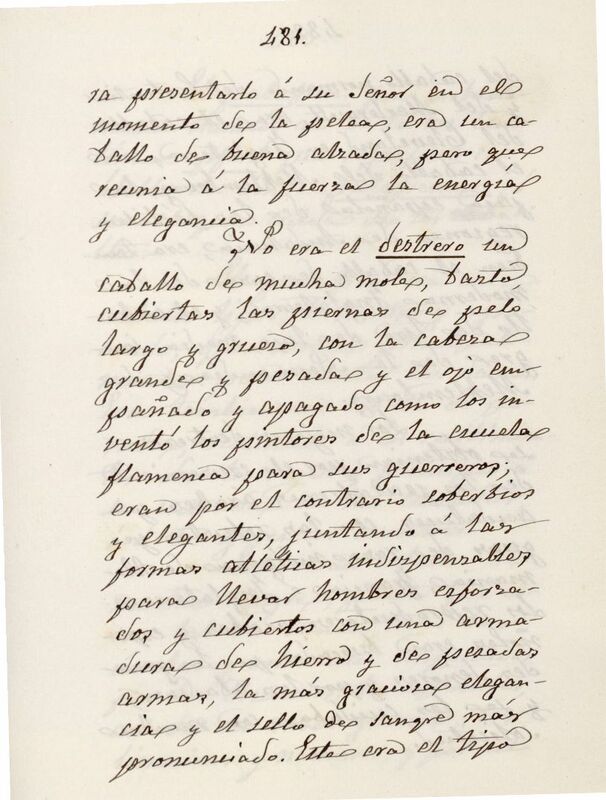 181.
ra presentarlo á su Señor en el
momento de la pelea, era un ca-
ballo de buena alzada, pero que
reunia á la fuerza la energía
y elegancia.
No era el destrero un
caballo de mucha mole, basto,
cubiertas las piernas de pelo
largo y grueso, con la cabeza
grande y pesada y el ojo em-
pañado y apagado como los in-
ventó los pintores de la escuela
flamenca para sus guerreros;
eran por el contrario soberbios
y elegantes, juntando á las
formas atléticas indispensables
para llevar hombres esforza-
dos y cubiertos con una arma-
dura de hierro y de pesadas
armas, la más graciosa elegan-
cia y el sello de sangre más
pronunciado. Este era el tipo